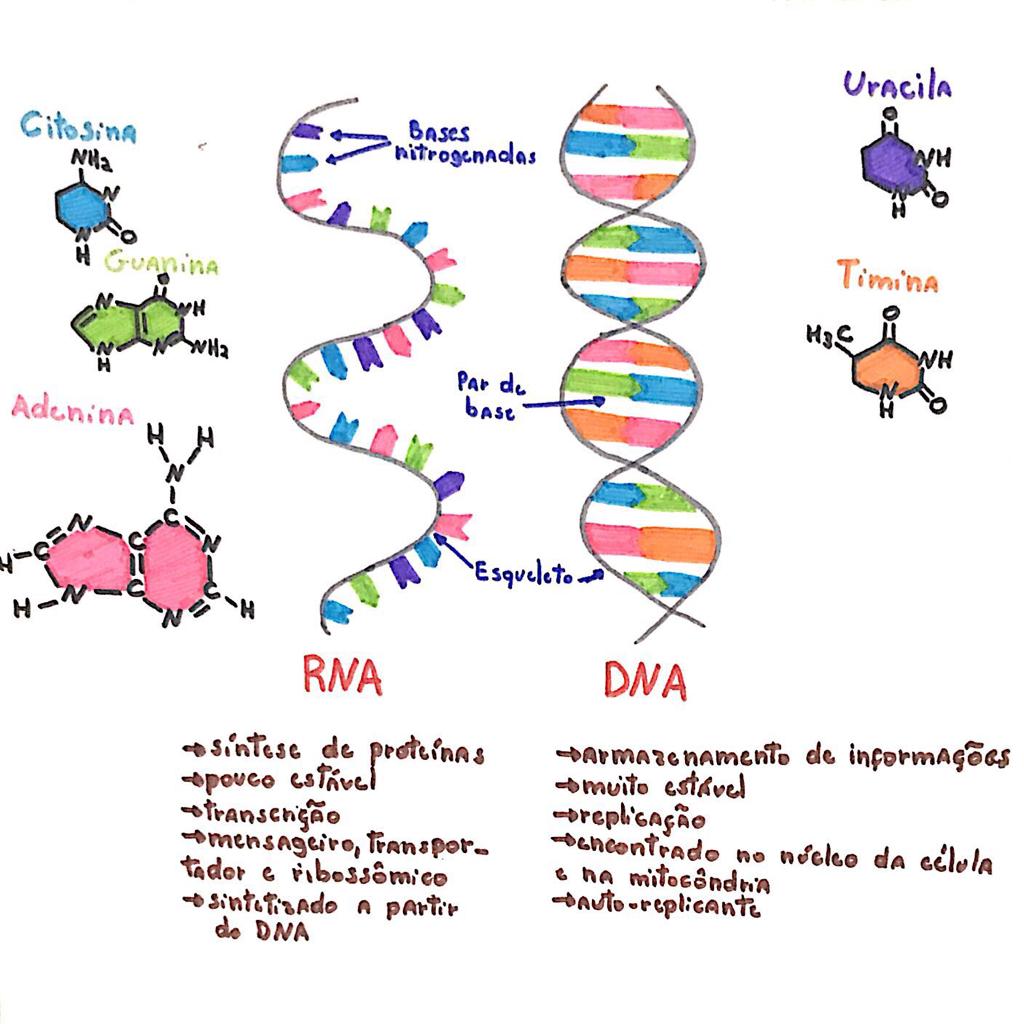 Citosina
NH₂
N
N
O
H
Guanina
O
N
NH
N
N
NH₂
H
Adenina
H H
N
C
N
C
N
H
C
C
N
C
N
H
H
Bases
nitrogenadas
Par de
base
Esqueleto
Uracila
O
NH
N
O
H
Timina
O
H₃C
NH
N
O
H
RNA
→síntese de proteínas
→pouco estável
→transcrição
→mensageiro, transpor-
tador e ribossômico
→sintetizado a partir
do DNA
DNA
→armazenamento de informações
→muito estável
→replicação
→encontrado no núcleo da célula
e na mitocôndria
→auto-replicante